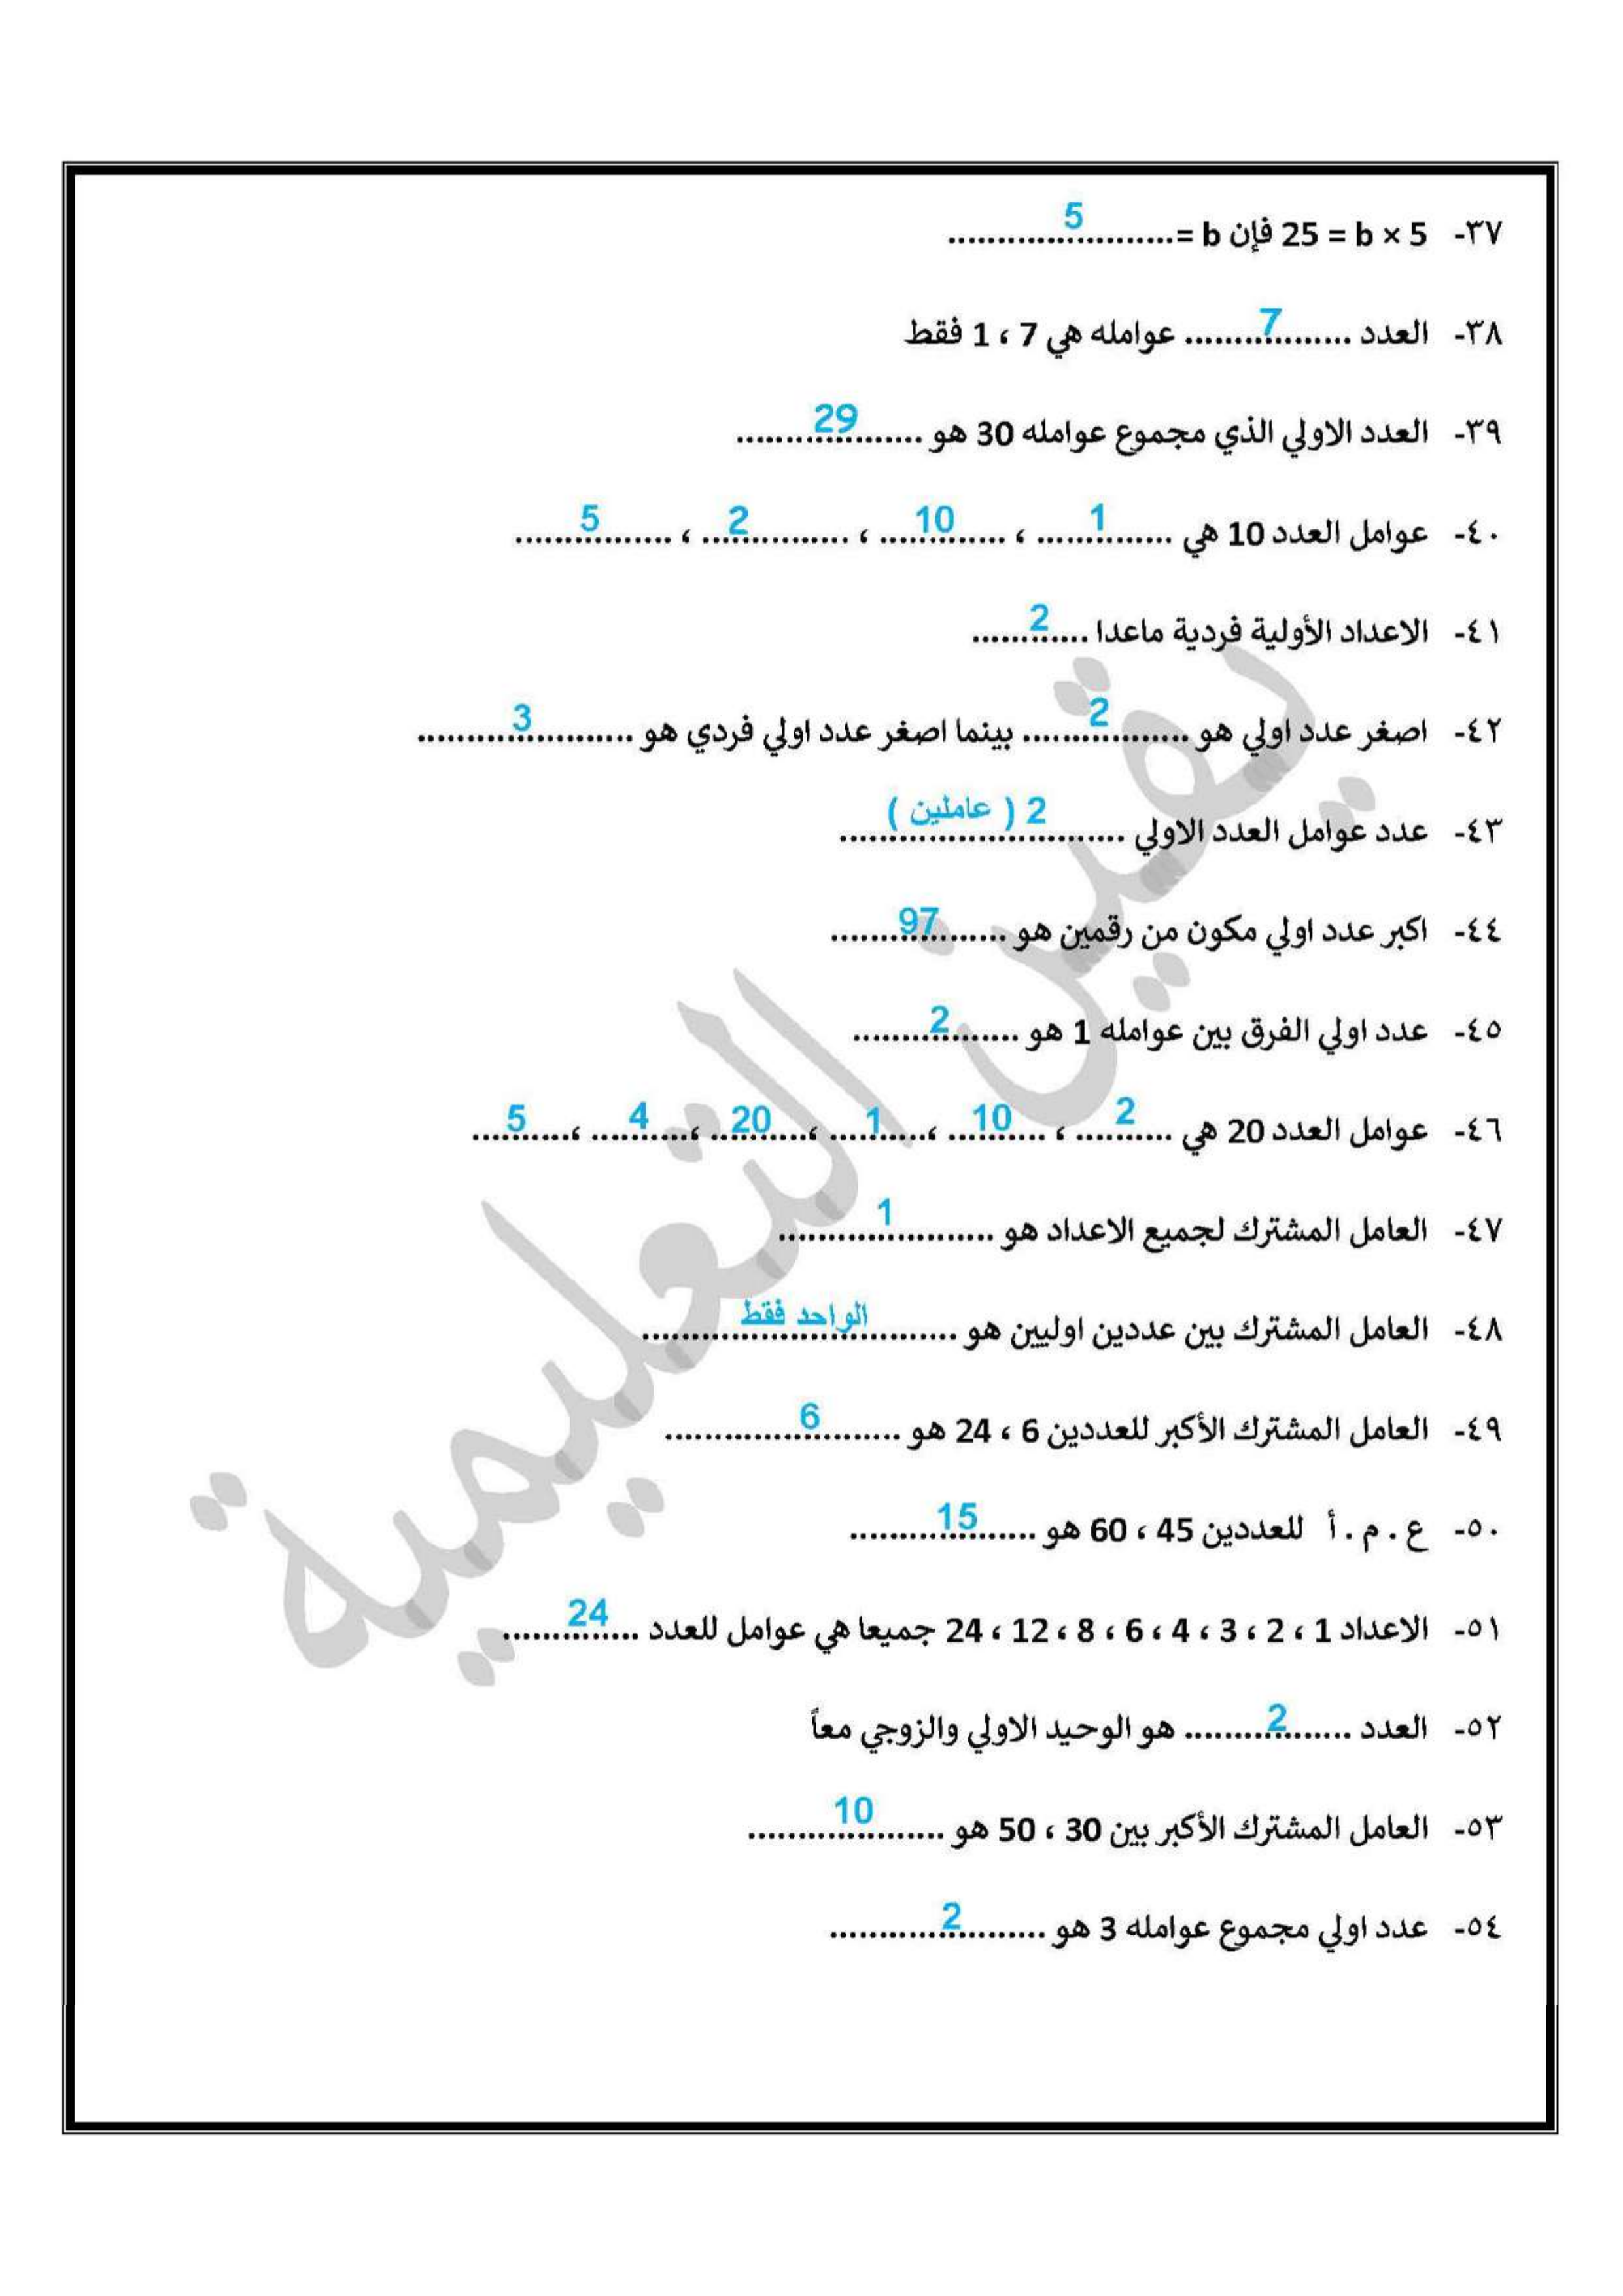 ٣٧- 25 = b × 5 فإن b =.......5.......
٣٨- العدد .......7....... عوامله هي 7 ، 1 فقط
٣٩- العدد الاولي الذي مجموع عوامله 30 هو .......29.......
٤٠- عوامل العدد 10 هي .......1....... ، .......10....... ، .......2....... ، .......5.......
٤١- الاعداد الأولية فردية ماعدا .....2.....
٤٢- اصغر عدد اولي هو .......2....... بينما اصغر عدد اولي فردي هو .......3.......
٤٣- عدد عوامل العدد الاولي .......2 ( عاملين ).......
٤٤- اكبر عدد اولي مكون من رقمين هو .......97.......
٤٥- عدد اولي الفرق بين عوامله 1 هو .......2.......
٤٦- عوامل العدد 20 هي .....2..... ، .....10..... ،.....1..... ،.....20..... ،.....4..... ،.....5.....
٤٧- العامل المشترك لجميع الاعداد هو .......1.......
٤٨- العامل المشترك بين عددين اوليين هو .......الواحد فقط.......
٤٩- العامل المشترك الأكبر للعددين 6 ، 24 هو .......6.......
٥٠- ع . م . أ للعددين 45 ، 60 هو .......15.......
٥١- الاعداد 1 ، 2 ، 3 ، 4 ، 6 ، 8 ، 12 ، 24 جميعا هي عوامل للعدد .....24.....
٥٢- العدد .......2....... هو الوحيد الاولي والزوجي معاً
٥٣- العامل المشترك الأكبر بين 30 ، 50 هو .......10.......
٥٤- عدد اولي مجموع عوامله 3 هو .......2.......
يقين التعليمية